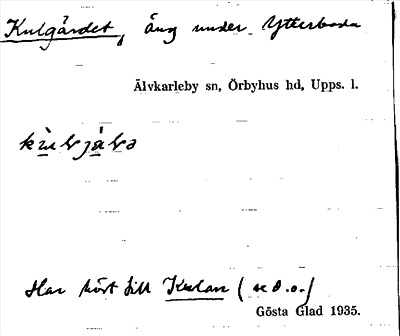 Kulgärdet, äng under Ytterboda
Älvkarleby sn, Örbyhus hd, Upps. l.
Har hört till Kulan (se d.o.)
Gösta Glad 1935.